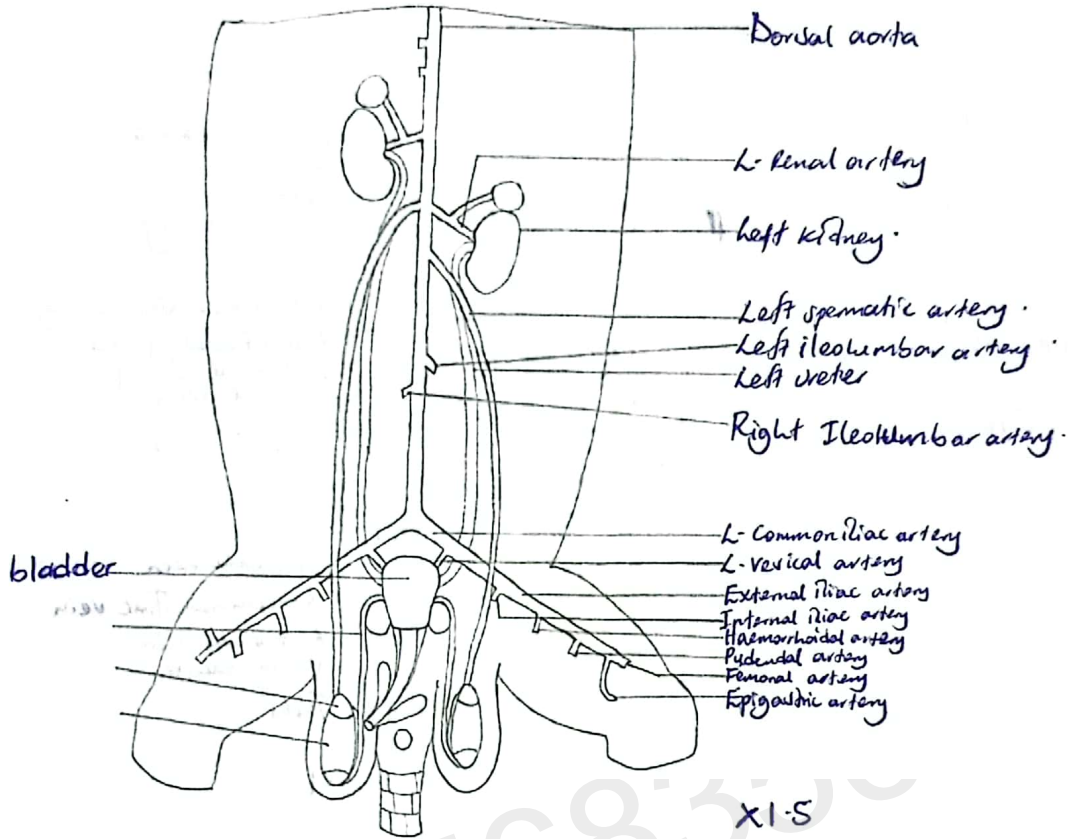 Dorsal aorta
L- Renal artery
Left kidney.
Left spermatic artery.
Left ileolumbar artery.
Left ureter
Right Ileolumbar artery.
L- Common iliac artery
bladder
L- verical artery
External iliac artery
Internal iliac artery
Haemorrhoidal artery
Pudendal artery
Femoral artery
Epigastric artery
X1.5